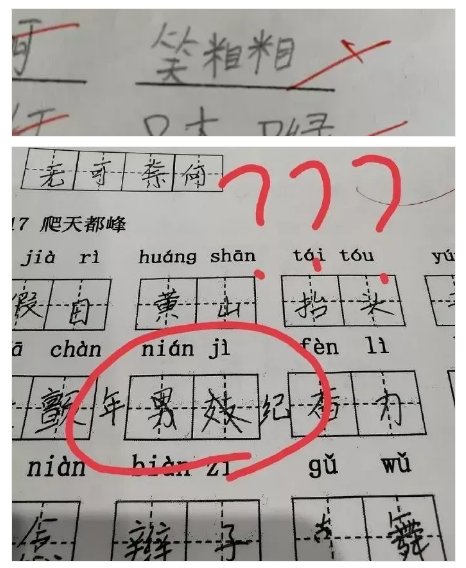 可 笑米目米目
无可奈何
???
17 爬天都峰
jià rì huáng shān tái tóu yú
假日 黄山 抬头
chàn nián jì fèn lì
颤 年男效纪 奋力
niàn biàn zi gǔ wǔ
念 辫子 舞